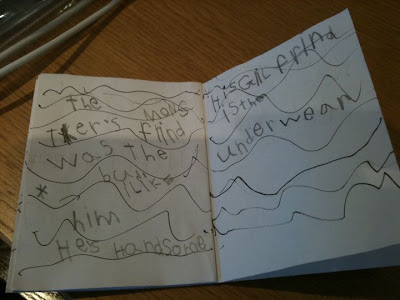 The mons
tker's frind
was the
butt
i Like
him
Hes Handsome
His GiL frind
is the
underwear